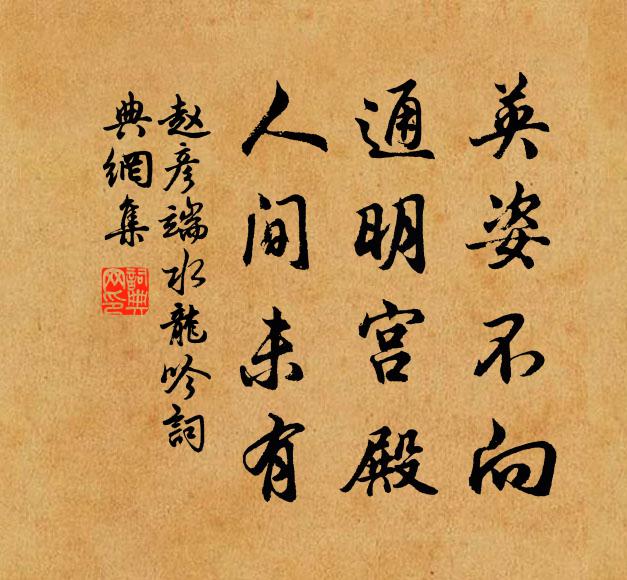 英姿不向
通明宫殿
人间未有
赵彦端水龍吟詞
典網集
詞典
网印